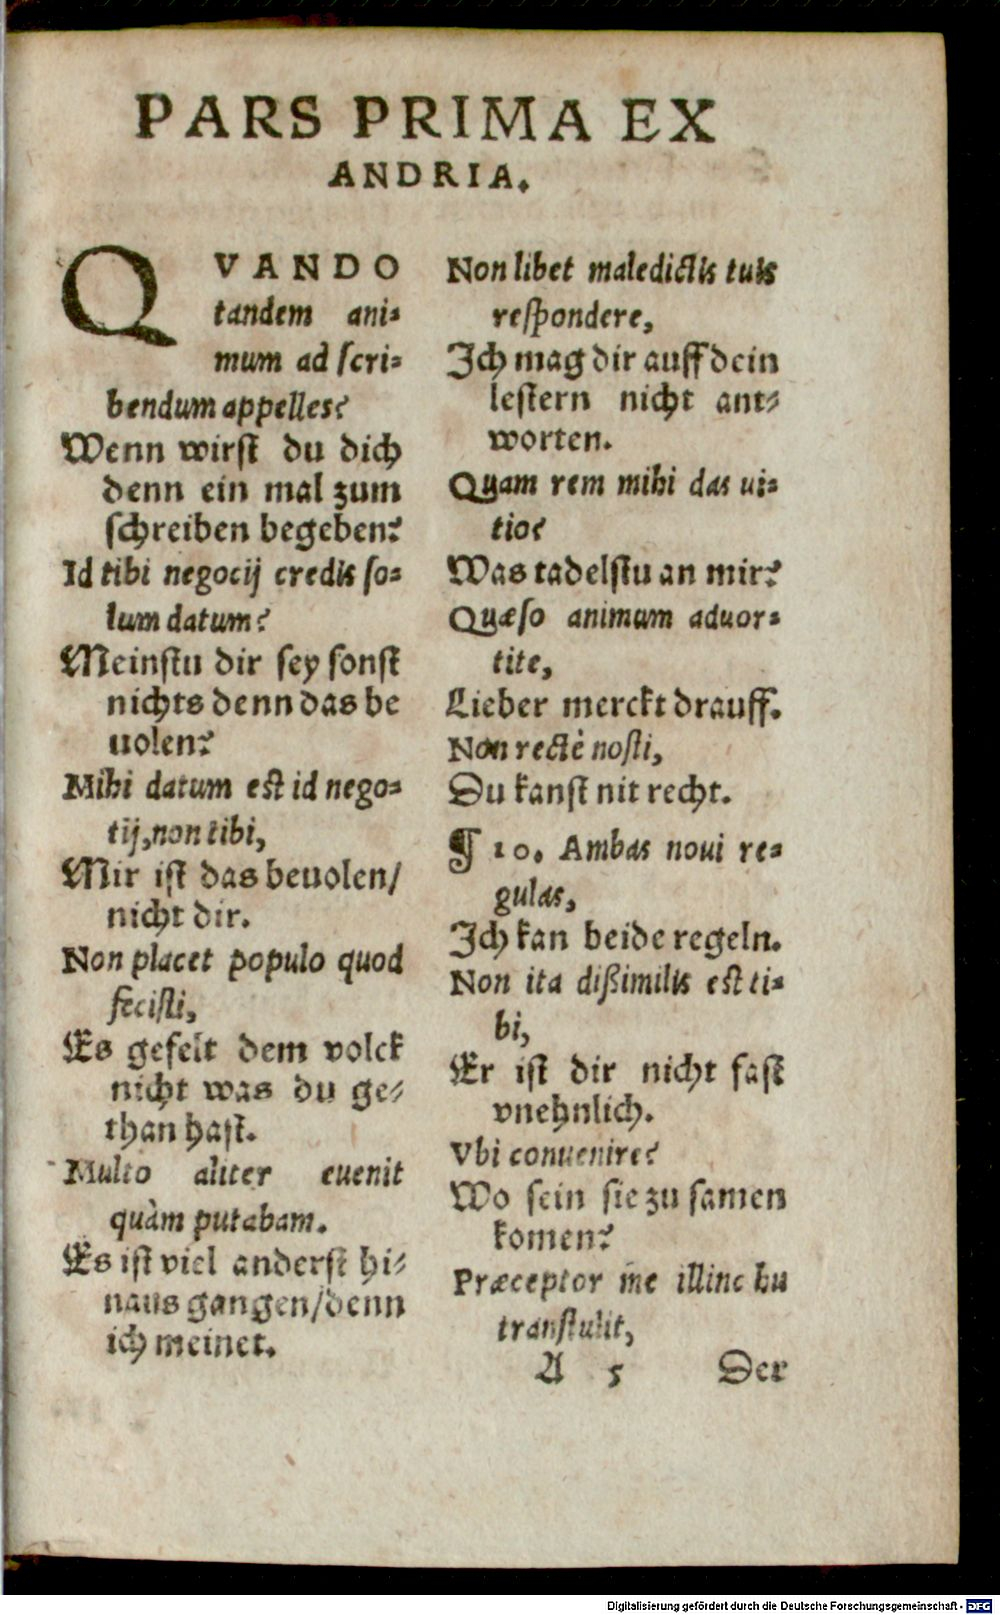 PARS PRIMA EX
ANDRIA.
QVANDO
tandem ani⸗
mum ad ſcri⸗
bendum appelles?
Wenn wirſt du dich
denn ein mal zum
ſchreiben begeben?
Id tibi negocij credis ſo⸗
lum datum?
Meinſtu dir ſey ſonſt
nichts denn das be
uolen?
Mihi datum est id nego⸗
tij, non tibi,
Mir iſt das beuolen/
nicht dir.
Non placet populo quod
feciſti,
Es gefelt dem volck
nicht was du ge⸗
than haſt.
Multo aliter euenit
quàm putabam.
Es iſt viel anderſt hi⸗
naus gangen/denn
ich meinet.
Non libet maledictis tuis
reſpondere,
Ich mag dir auff dein
leſtern nicht ant⸗
worten.
Quam rem mihi das ui⸗
tio?
Was tadelſtu an mir?
Quæſo animum aduor⸗
tite,
Lieber merckt drauff.
Non rectè noſti,
Du kanſt nit recht.
¶ 10. Ambas noui re⸗
gulas,
Ich kan beide regeln.
Non ita dißimilis est ti⸗
bi,
Er iſt dir nicht faſt
vnehnlich.
Vbi conuenire?
Wo ſein ſie zu ſamen
komen?
Præceptor me illinc hu
tranſtulit,
A 5 Der
Digitalisierung gefördert durch die Deutsche Forschungsgemeinschaft - DFG